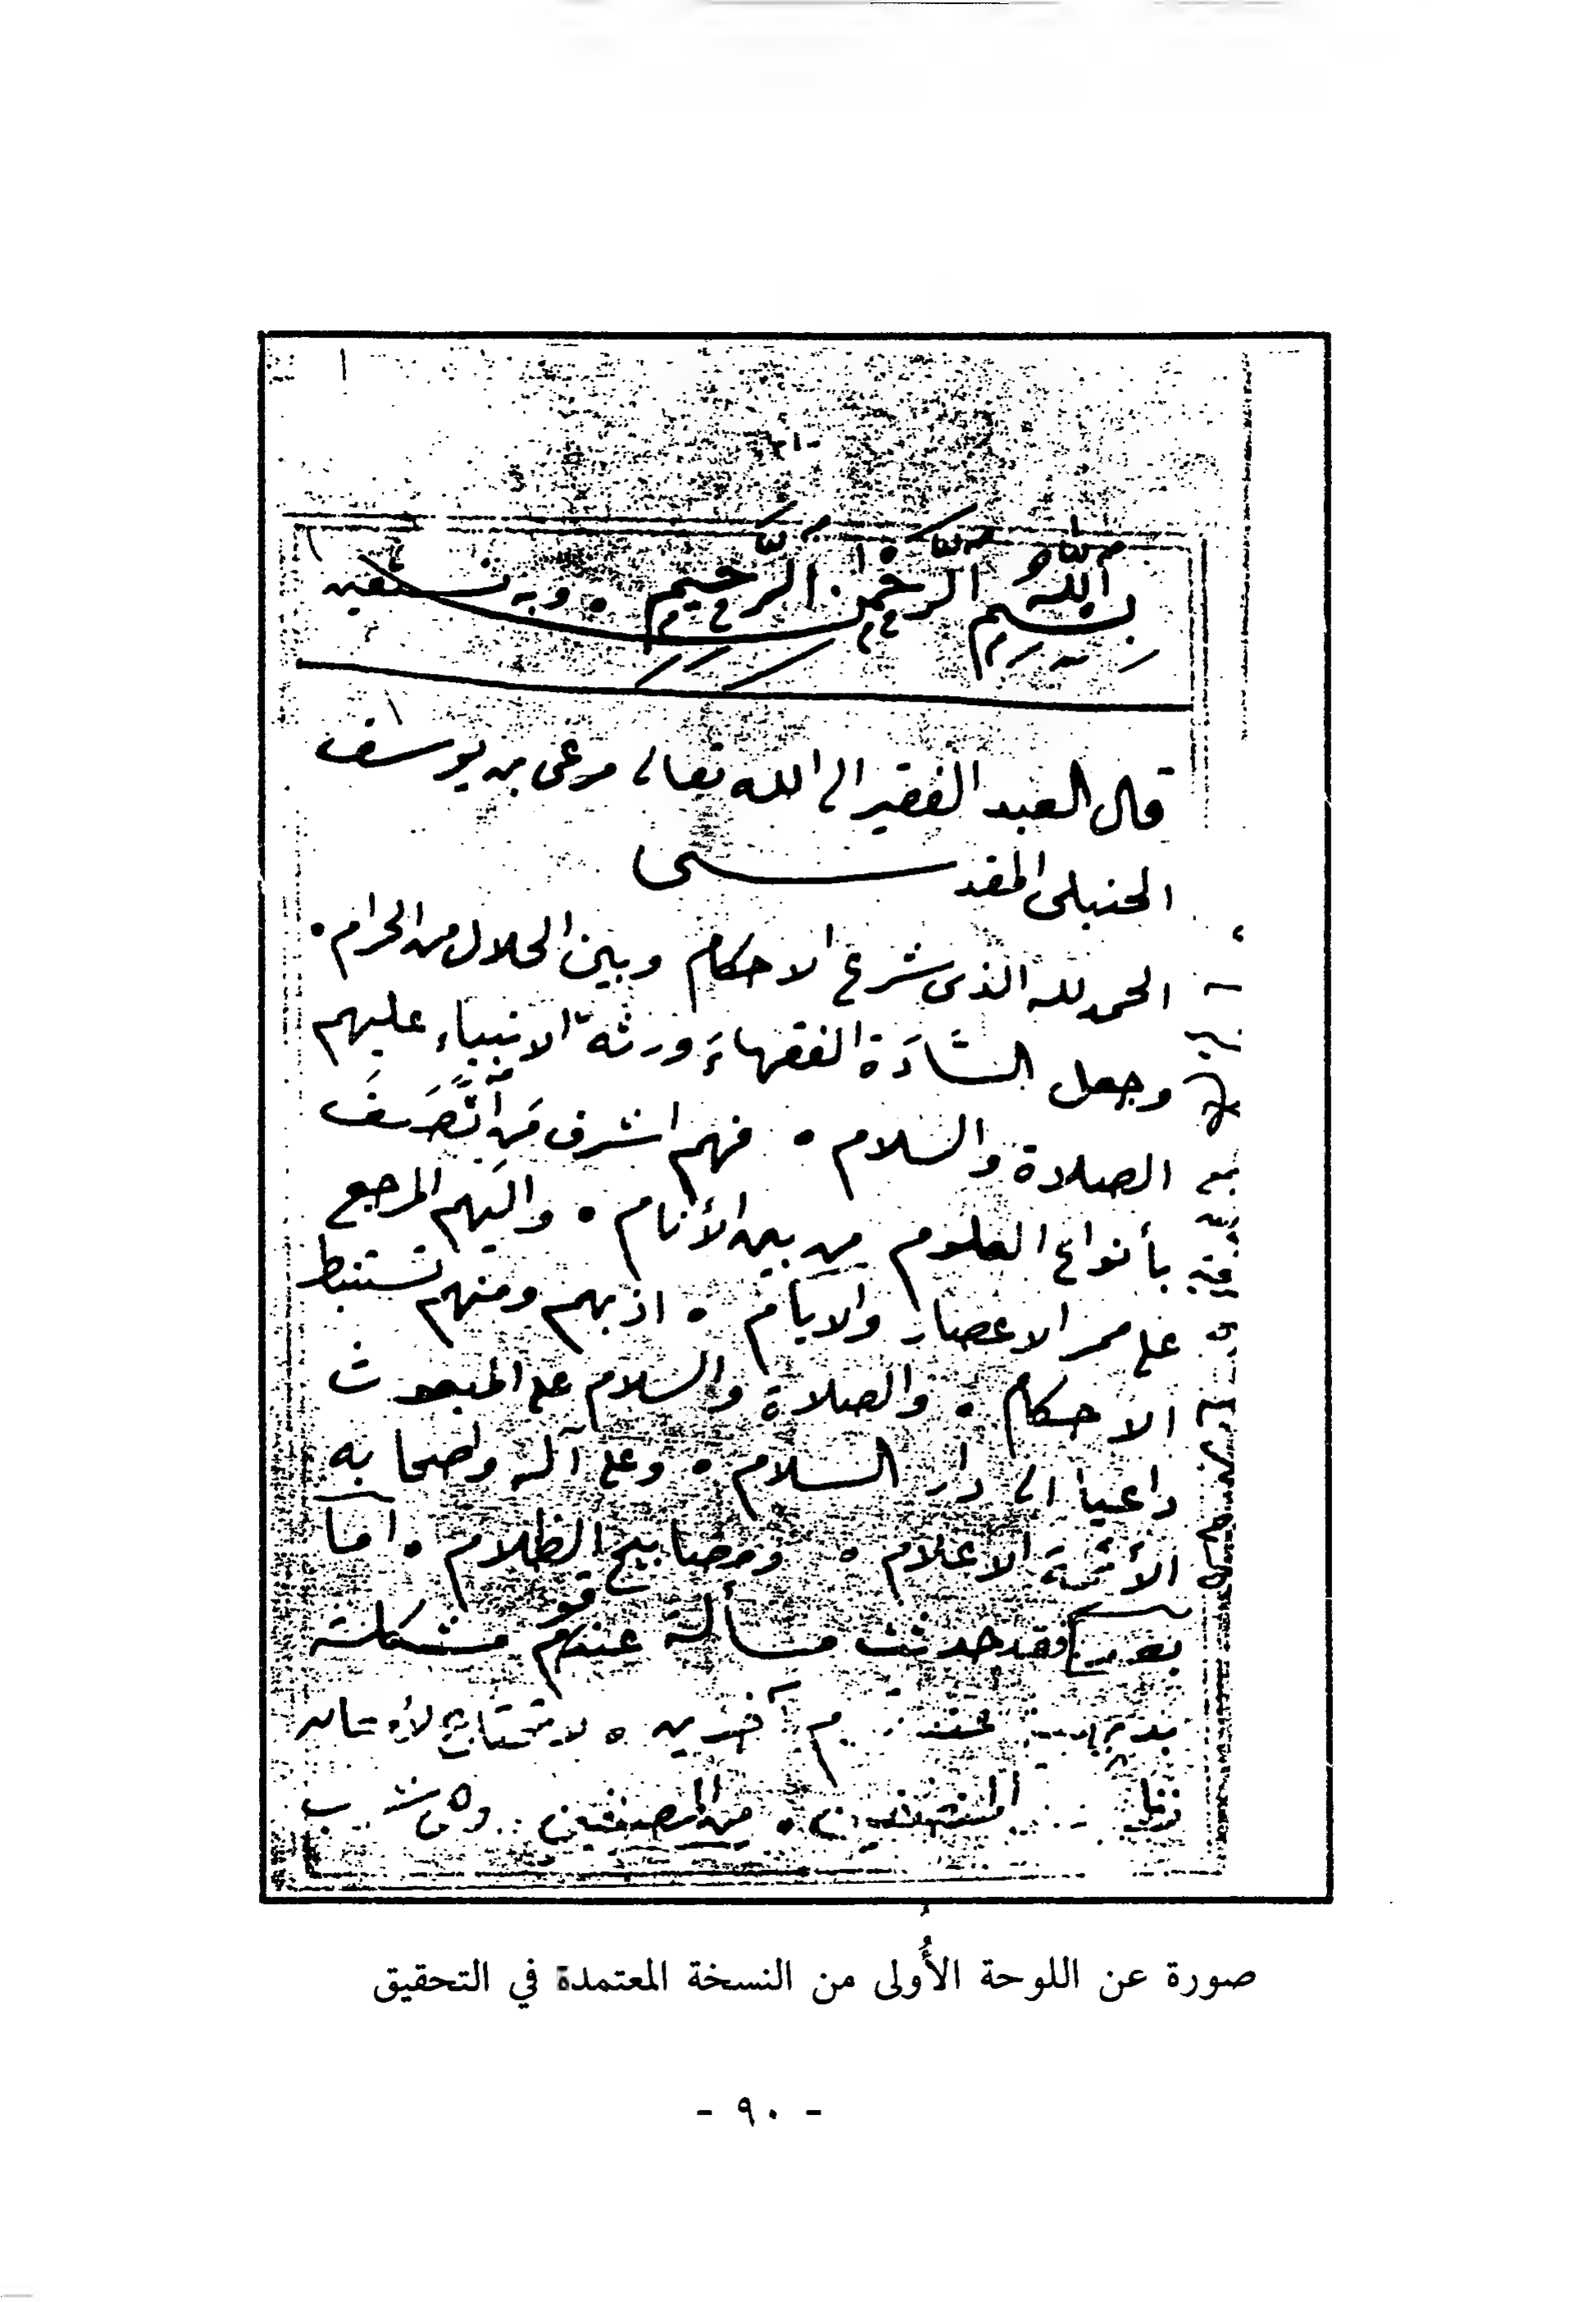 بسم الله الرحمن الرحيم • وبه نستعين
قال العبد الفقير الى الله تعالى مرعى بن يوسف
الحنبلى المقدسى
الحمد لله الذى شرع الاحكام وبين الحلال من الحرام •
وجعل السَّادَة الفقهاءَ ورثة الانبياء عليهم
الصلاة والسلام • فهم اشرف مَن اتَّصَف
بأنواع العلوم من بين الأنام • واليهم المرجع
على ممر الاعصار والايام • اذ بهم ومنهم تستنبط
الاحكام • والصلاة والسلام على المبعوث
داعيا الى دار السلام • وعلى آله واصحابه
الأئمة الاعلام • ومصابيح الظلام • اما
بعد فقد حدثت مسألة عند قوم مشكلة
آخرين • لا تحتاج
من المصنفين
صورة عن اللوحة الأُولى من النسخة المعتمدة في التحقيق
- ٩٠ -